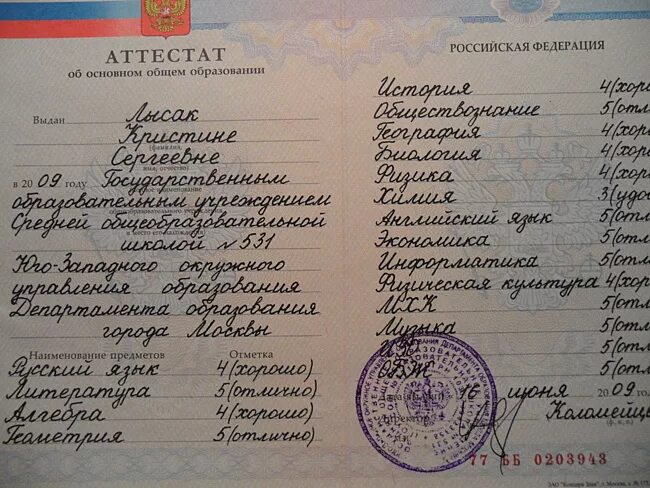 АТТЕСТАТ
об основном общем образовании
Выдан Лысак
Кристине
(фамилия,
Сергеевне
имя, отчество)
в 2009 году Государственным
образовательным учреждением
Средней общеобразовательной
школой №531
Юго-Западного окружного
управления образования
Департамента образования
города Москвы
Наименование предметов Отметка
Русский язык 4(хорошо)
Литература 5(отлично)
Алгебра 4(хорошо)
Геометрия 5(отлично)
РОССИЙСКАЯ ФЕДЕРАЦИЯ
История 4(хор
Обществознание 5(отл
География 4(хор
Биология 4(хор
Физика 4(хор
Химия 3(удо
Английский язык 5(отл
Экономика 5(отл
Информатика 5(отл
Физическая культура 4(хор
МХК 5(отл
Музыка 5(отл
ИЗО 5(отл
ОБЖ 5(отл
16 июня 2009
Директор Коломейц
77 ББ 0203943